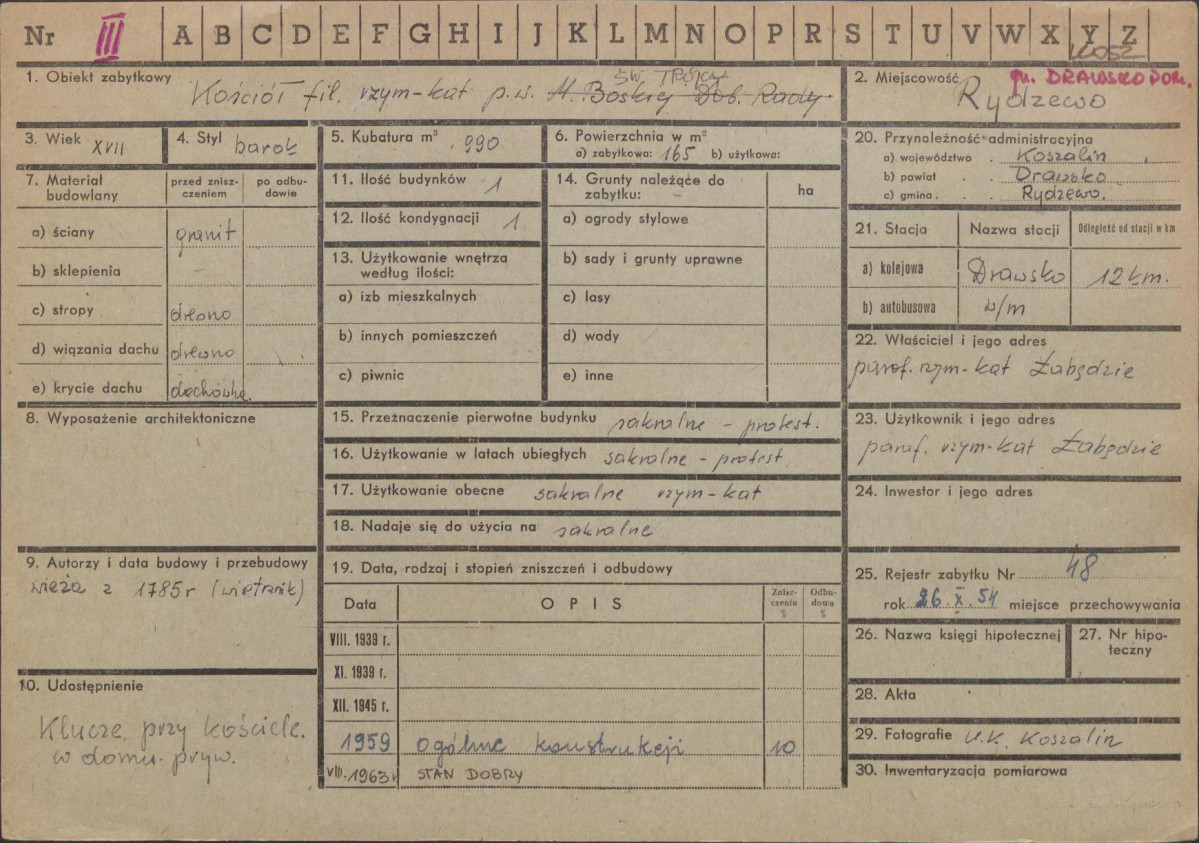 Nr III A B C D E F G H I J K L M N O P R S T U V W X Y Z
KOSZ
gm. DRAWSKO POM.
1. Obiekt zabytkowy
ŚW. TRÓJCY
Kościół fil. rzym-kat p.w. M. Boskiej Dob. Rady
2. Miejscowość
Rydzewo
3. Wiek XVII
4. Styl barok
5. Kubatura m³ 990
6. Powierzchnia w m²
a) zabytkowa: 165 b) użytkowa:
7. Materiał budowlany
przed znisz-czeniem
po odbu-dowie
a) ściany granit
b) sklepienia -
c) stropy drewno
d) wiązania dachu drewno
e) krycie dachu dachówka
8. Wyposażenie architektoniczne
9. Autorzy i data budowy i przebudowy
wieża z 1785r (wietrznik)
10. Udostępnienie
Klucze przy kościele.
w domu pryw.
11. Ilość budynków 1
12. Ilość kondygnacji 1
13. Użytkowanie wnętrza
według ilości:
a) izb mieszkalnych
b) innych pomieszczeń
c) piwnic
14. Grunty należące do
zabytku:
ha
a) ogrody stylowe
b) sady i grunty uprawne
c) lasy
d) wody
e) inne
15. Przeznaczenie pierwotne budynku sakralne - protest.
16. Użytkowanie w latach ubiegłych sakralne - protest.
17. Użytkowanie obecne sakralne rzym-kat
18. Nadaje się do użycia na sakralne
19. Data, rodzaj i stopień zniszczeń i odbudowy
Data OPIS Znisz-czenia % Odbu-dowa %
VIII. 1939 r.
XI. 1939 r.
XII. 1945 r.
1959 ogólne konstrukcji 10
VIII. 1963 r STAN DOBRY
20. Przynależność administracyjna
a) województwo Koszalin
b) powiat Drawsko
c) gmina Rydzewo.
21. Stacja Nazwa stacji Odległość od stacji w km
a) kolejowa Drawsko 12 km.
b) autobusowa w/m
22. Właściciel i jego adres
paraf. rzym-kat Żabędzie
23. Użytkownik i jego adres
paraf. rzym-kat Żabędzie
24. Inwestor i jego adres
25. Rejestr zabytku Nr 48
rok 26. X. 54 miejsce przechowywania
26. Nazwa księgi hipotecznej
27. Nr hipo-
teczny
28. Akta
29. Fotografie W.K. Koszalin
30. Inwentaryzacja pomiarowa